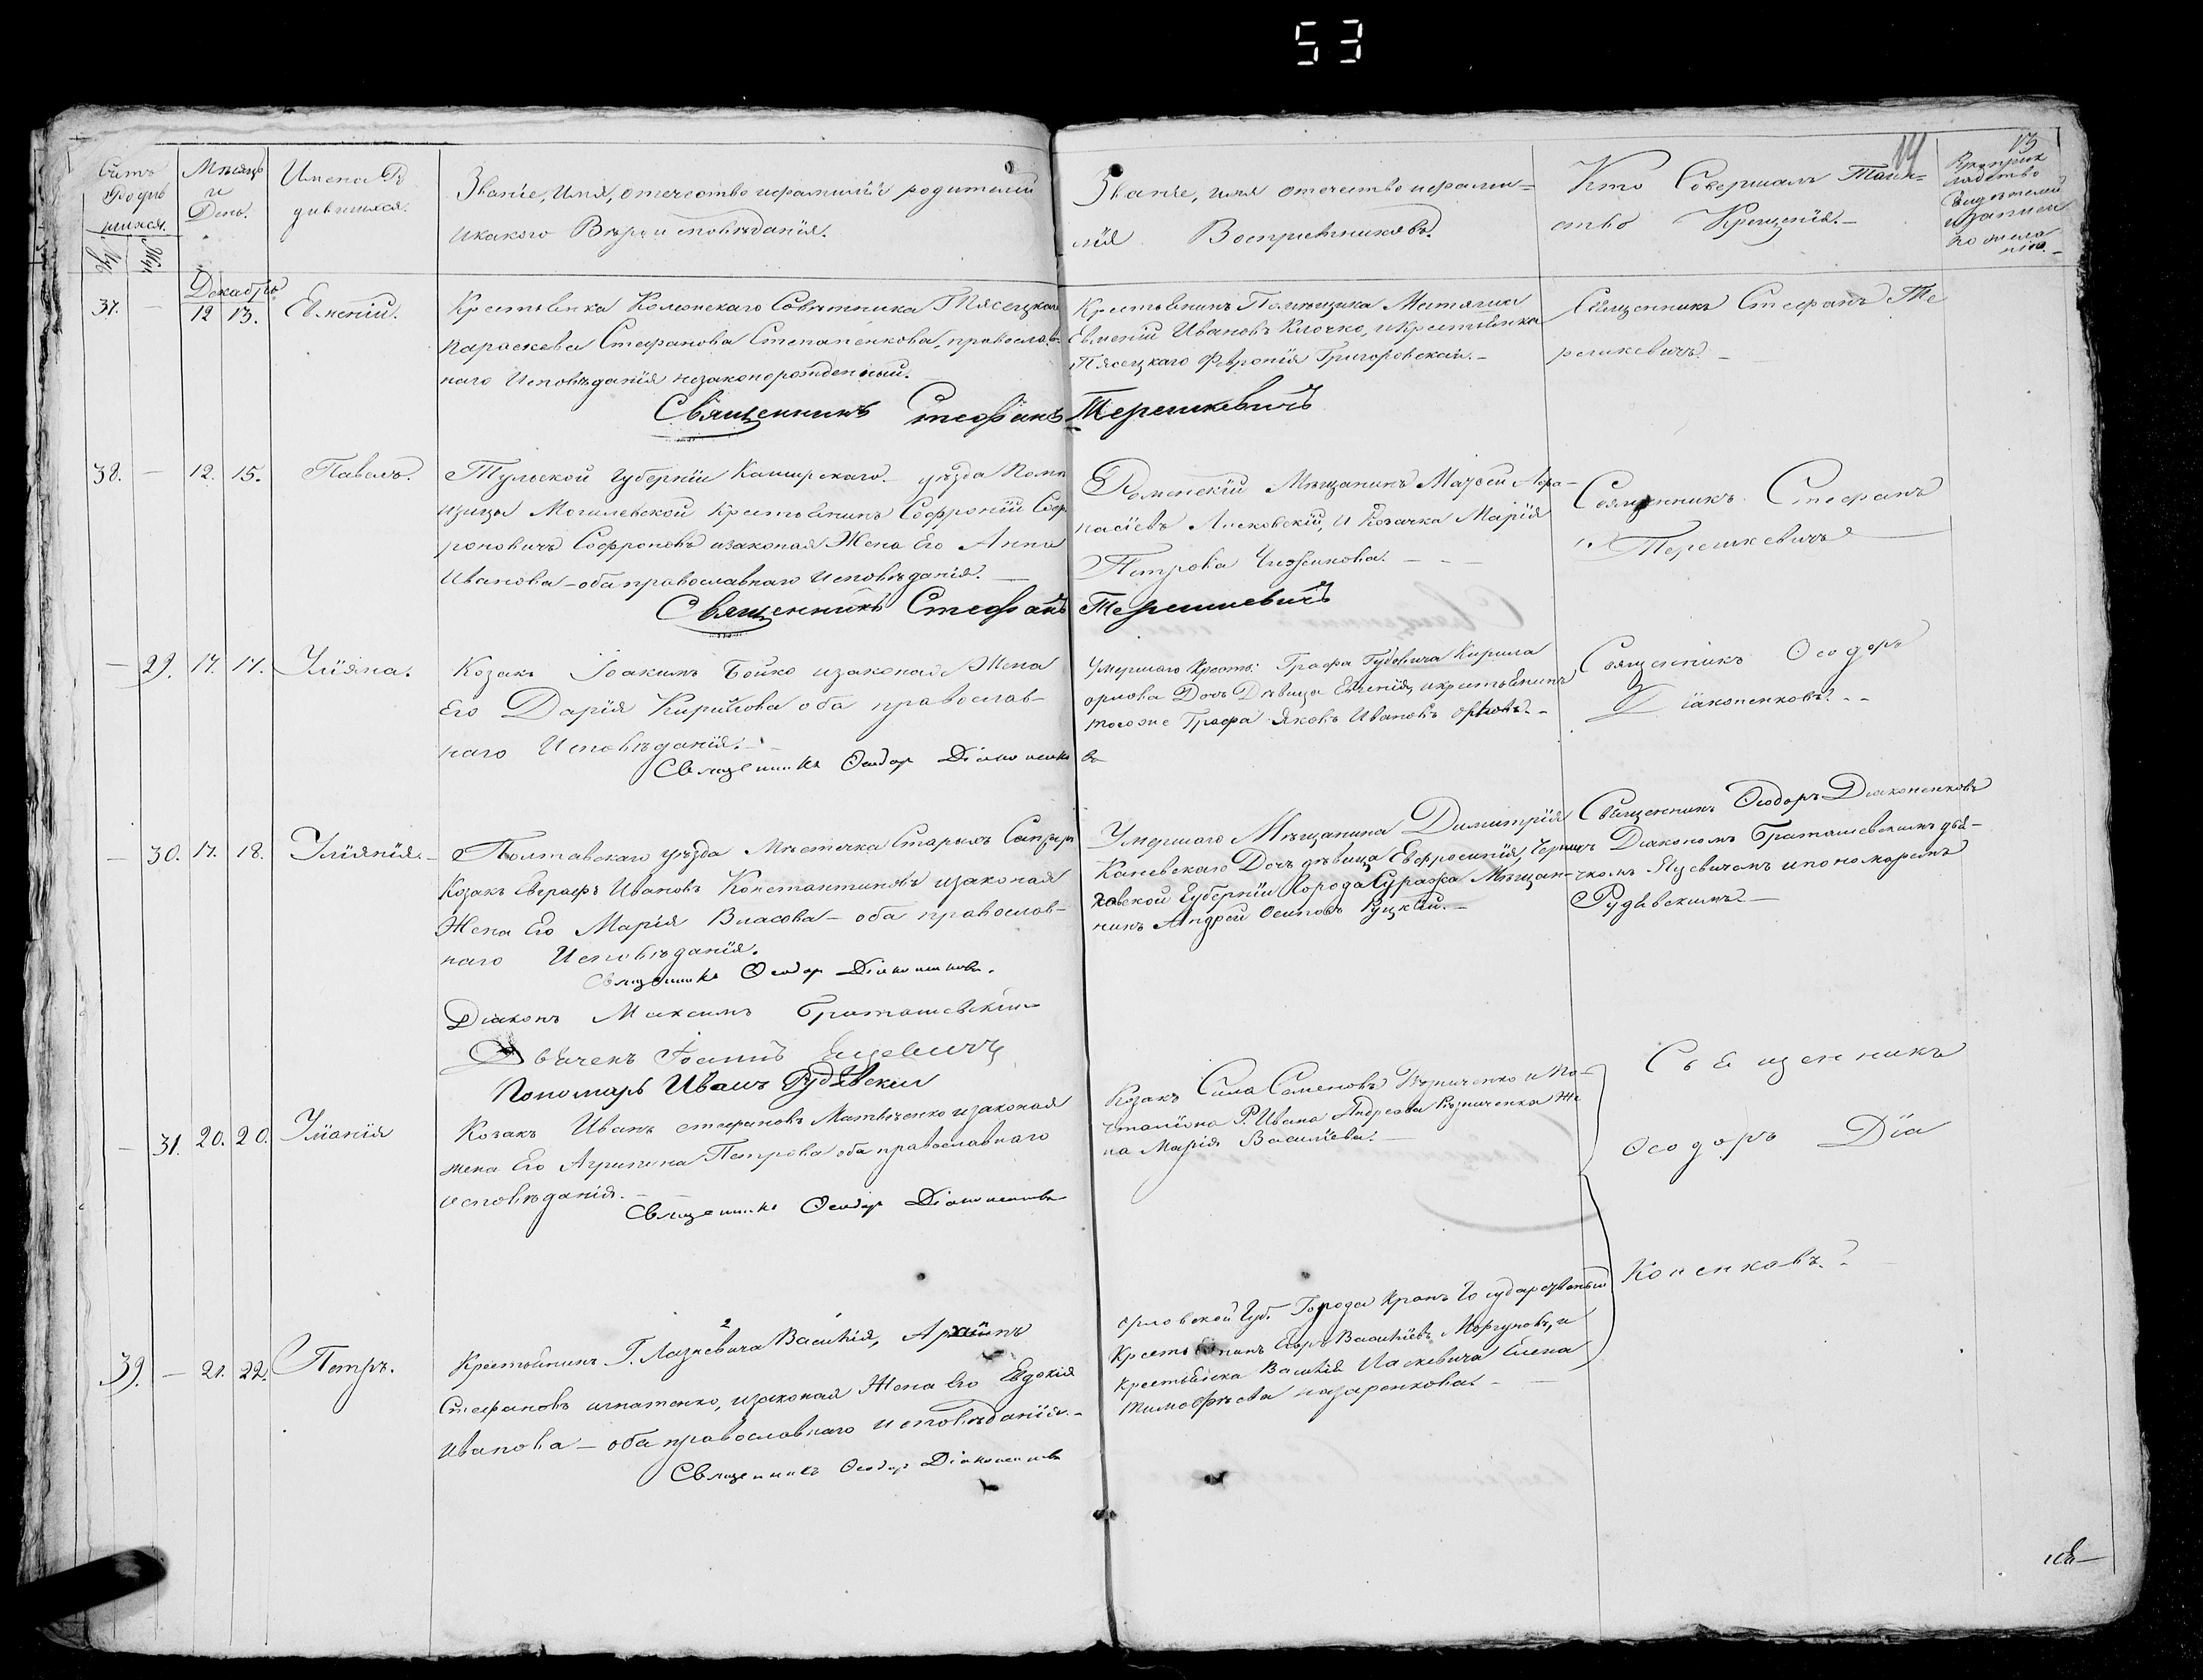 53
14
13
Счетъ родившихся.
Муж. Жен.
Мѣсяцъ и День.
Имена Родившихся.
Званіе, Имя, отечество и фамиліи родителей
и какого Вѣроисповѣданія.
Званіе, имя отечество и фами=
лія Воспріемниковъ.
Кто Совершалъ Таин=
ство Крещенія.
Рукоприкладство Свидетелей записи по желанію.
Декабрь
37. — 12 13. Евменій.
Крестьянка Колежскаго Совѣтника Г. Пясецкаго
Параскева Стефанова Степаненкова, православ-
наго Исповѣданія незаконорожденный.
Крестьянинъ Помѣщика
Евменій Ивановъ Клочко, и крестьянка
Пясецкаго Февронія Григоровская.
Священникъ Стефанъ Те
решкевичъ.
Священникъ Стефанъ Терешкевичъ
38. — 12. 15. Павелъ.
Тульской Губерніи Каширскаго уѣзда Помѣ
щицы Могилевской Крестьянинъ Софроній Соф
роновичъ Софроновъ и законая Жена Его Анна
Иванова — оба православнаго Исповѣданія.
Роменскій Мѣщанинъ Матѳей Афа-
насіевъ Лисковскій, и Козачка Марія
Петрова Чижикова.
Священникъ Стефанъ
Терешкевичъ
Священникъ Стефанъ Терешкевичъ
— 29. 17. 17. Уліяна.
Козакъ Іоакимъ Бойко и законая Жена
Его Дарія Кирилова оба православ-
наго Исповѣданія.
Умершаго Крест: Графа Гудовича Кирила
орлова Дочь Дѣвица Евгенія, и крестьянинъ
того же Графа Яковъ Ивановъ орловъ.
Священникъ Ѳеодоръ
Діаконенковъ.
Священникъ Ѳеодоръ Діаконенковъ
— 30. 17. 18. Уліянія.
Полтавскаго уѣзда Мѣстечка Старыхъ Санжаръ
Козакъ Евграфъ Ивановъ Константиновъ и законая
Жена Его Марія Власова — оба православ-
наго Исповѣданія.
Умершаго Мѣщанина Димитрія
Каневскаго Дочь дѣвица Евфросинія, Черни
говской Губерніи города Суража Мѣщан-
нинъ Андрей Осиповъ Руцкій.
Священникъ Ѳеодоръ Діаконенковъ
съ Діакономъ Браташевскимъ дья-
чкомъ Яцевичемъ и пономаремъ
Рудявскимъ.
Священникъ Ѳеодоръ Діаконенковъ.
Діаконъ Максимъ Браташевскій
Дьячекъ Іоаннъ Яцевичъ
Пономарь Иванъ Рудявскій
— 31. 20. 20. Уліанія
Козакъ Иванъ стефановъ Матвѣенко и законая
жена Его Агрипина Петрова оба православнаго
исповѣданія.
Козакъ Сила Семеновъ
Ивана Андреева
на Марія Василіева.
Священникъ
Ѳеодоръ Діа
коненковъ.
Священникъ Ѳеодоръ Діаконенковъ
39. — 21. 22. Петръ.
Крестьянинъ Г. Лазкевича Василія,
Стефановъ игнатенко, и законая Жена Его Евдокія
Иванова — оба православнаго исповѣданія.
орловской Губ. Города Кромъ Государственый
Крестьянинъ Егоръ Василіевъ Моргуновъ, и
крестьянка Василія Ласкевича Елена
тимофѣева назаренкова.
Священникъ Ѳеодоръ Діаконенковъ